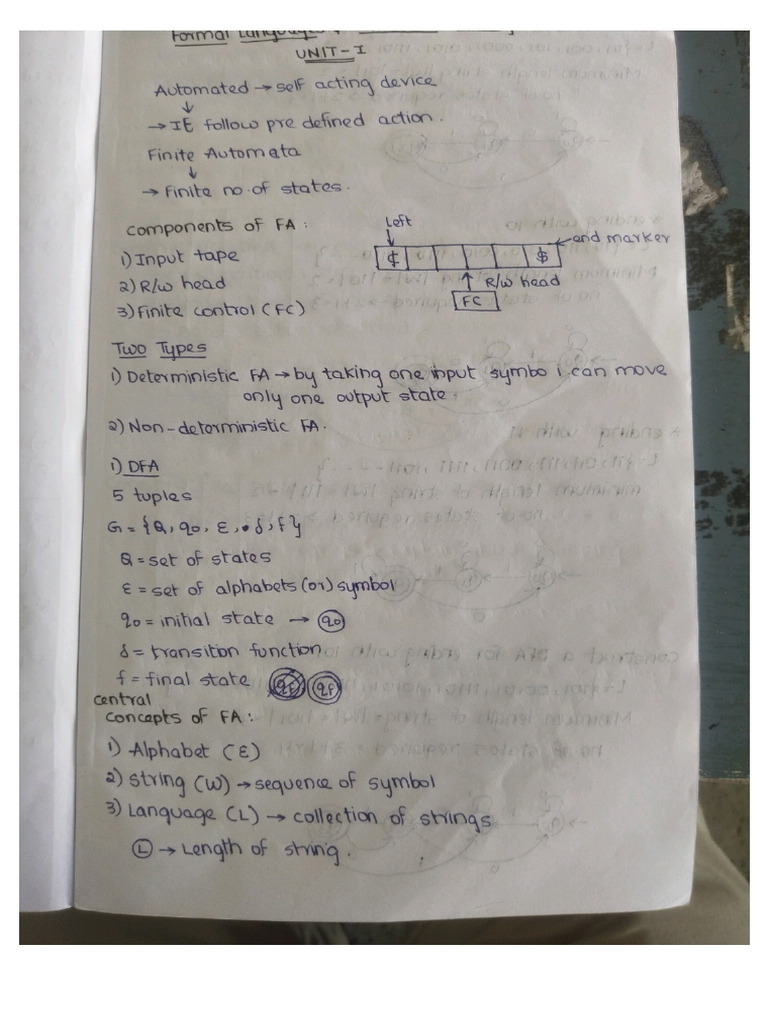 Formal Languages
UNIT-I
Automated → self acting device
↓
→ It follow pre defined action.
Finite Automata
↓
→ Finite no. of states.
components of FA :
1) Input tape
2) R/W head
3) Finite control (FC)
Left
¢ $
end marker
R/W head
FC
Two Types
1) Deterministic FA → by taking one input symbo i can move
only one output state.
2) Non-deterministic FA.
1) DFA
5 tuples
G = {Q, q0, ε, δ, f}
Q = set of states
ε = set of alphabets (or) symbol
q0 = initial state → q0
δ = transition function
f = final state qf qf
central
concepts of FA :
1) Alphabet (ε)
2) string (W) → sequence of symbol
3) Language (L) → collection of strings
L → Length of string.